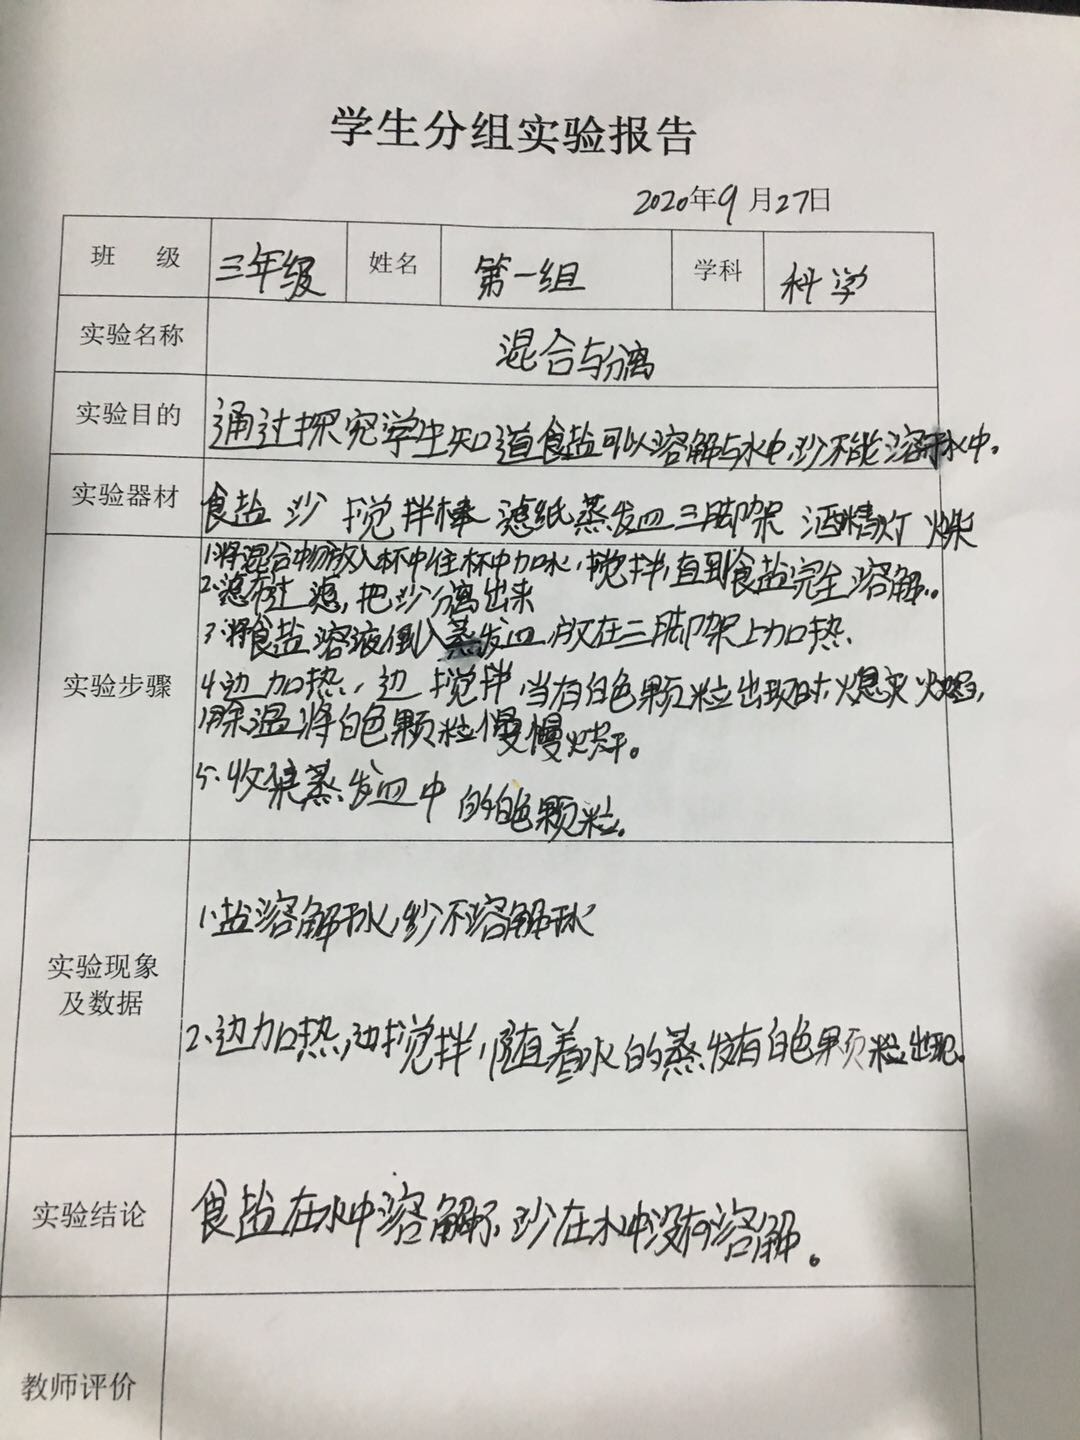 学生分组实验报告
2020年9月27日
班 级 三年级 姓名 第一组 学科 科学
实验名称 混合与分离
实验目的 通过探究学生知道食盐可以溶解与水中,沙不能溶于水中。
实验器材 食盐 沙 搅拌棒 滤纸 蒸发皿 三脚架 酒精灯 火柴
1.将混合物放入杯中往杯中加水,搅拌,直到食盐完全溶解..
2.滤布过滤,把沙分离出来
3.将食盐溶液倒入蒸发皿,放在三脚架上加热.
实验步骤 4.边加热,边搅拌,当有白色颗粒出现时,熄灭火焰,
用余温将白色颗粒慢慢烘干。
5.收集蒸发皿中的白色颗粒。
1.盐溶解于水,沙不溶解于水
实验现象
及数据
2.边加热,边搅拌,随着水的蒸发有白色颗粒出现。
实验结论 食盐在水中溶解了,沙在水中没有溶解。
教师评价